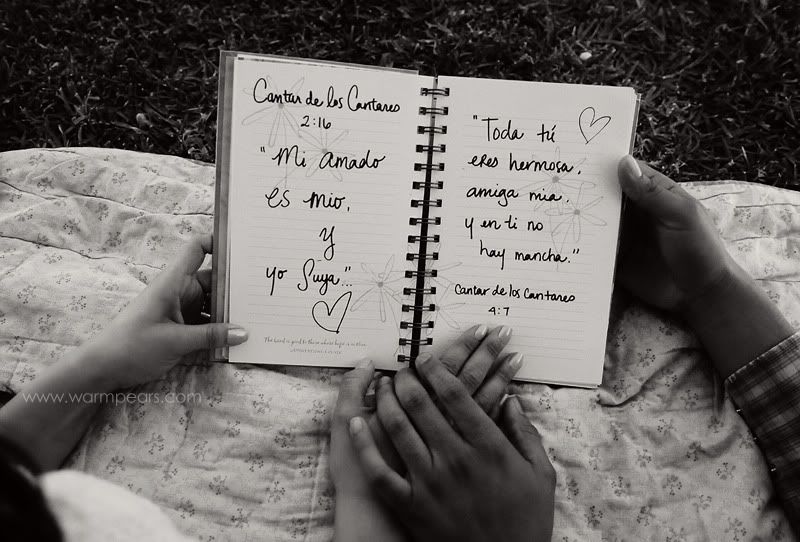 Cantar de los Cantares
2:16
"Mi Amado
es mio,
y
yo Suya"...
The Lord is good to those whose hope is in Him
"Toda tú
eres hermosa,
amiga mia,
y en ti no
hay mancha."
Cantar de los Cantares
4:7
www.warmpears.com